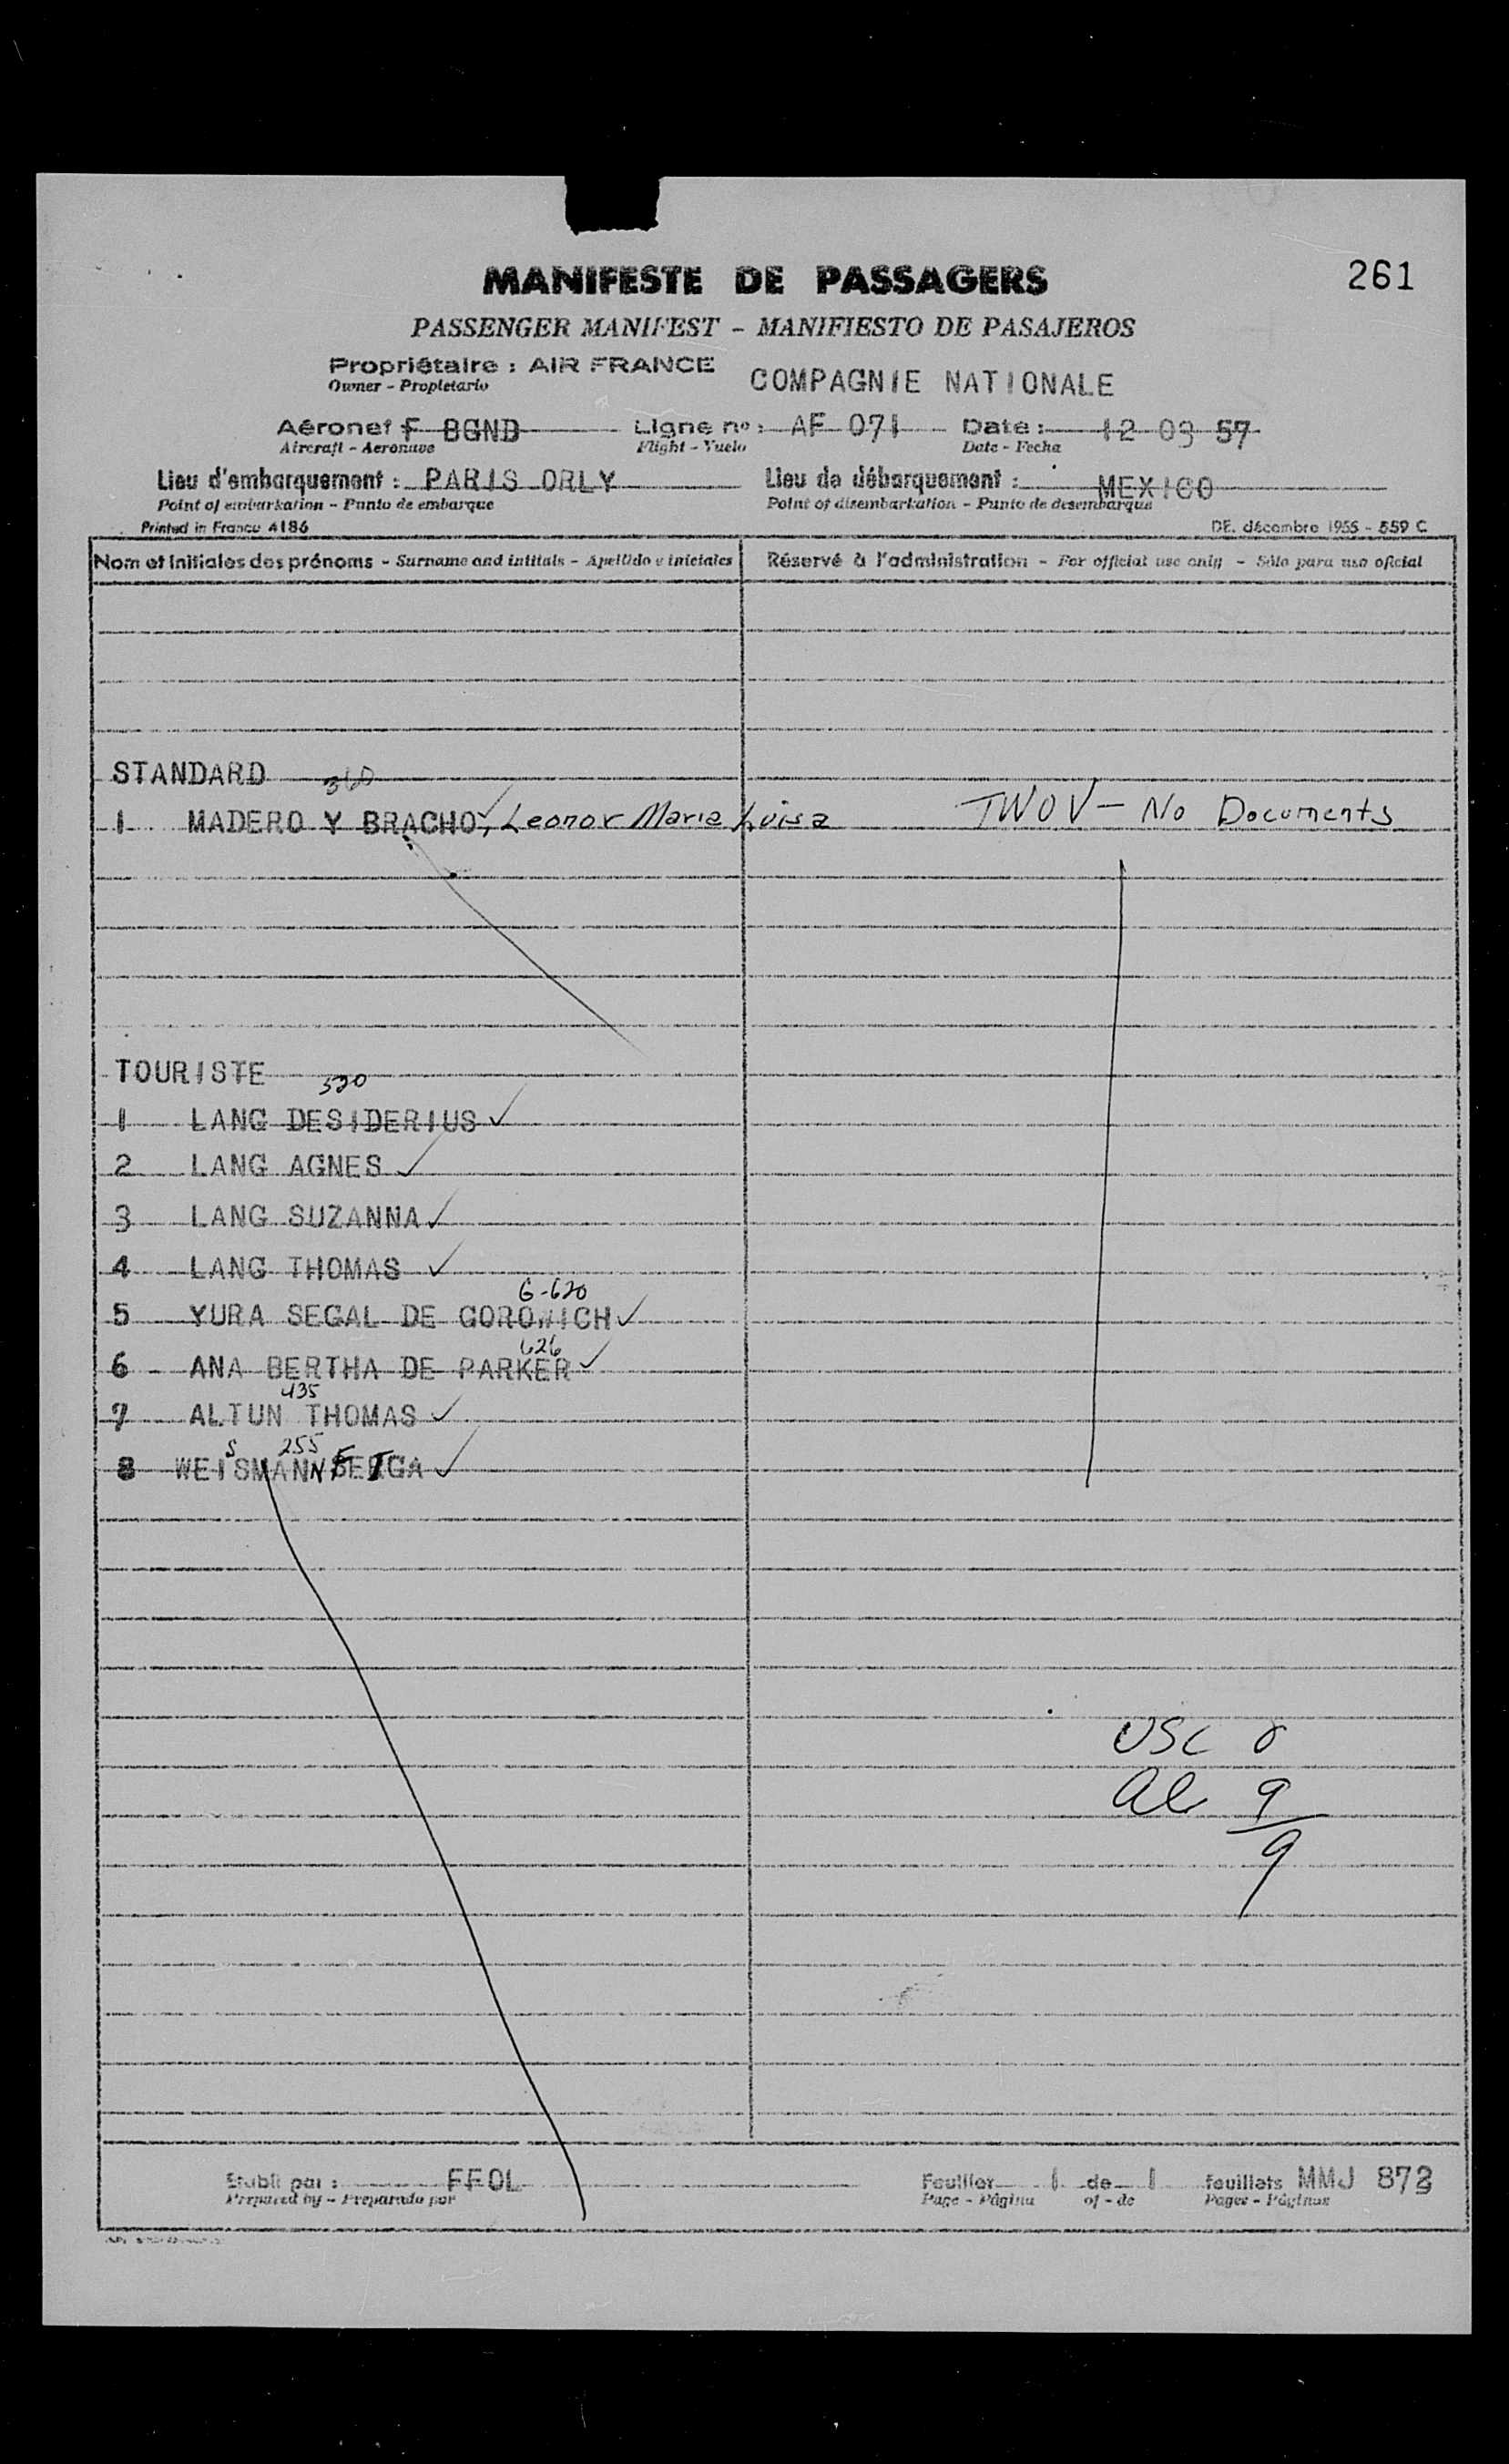 261
MANIFESTE DE PASSAGERS
PASSENGER MANIFEST - MANIFIESTO DE PASAJEROS
Propriétaire : AIR FRANCE COMPAGNIE NATIONALE
Owner - Propietario
Aéronef F BGND Ligne no : AF 071 Date : 12 03 57
Aircraft - Aeronave Flight - Vuelo Date - Fecha
Lieu d'embarquement : PARIS ORLY Lieu de débarquement : MEXICO
Point of embarkation - Punto de embarque Point of disembarkation - Punto de desembarque
Printed in France 4186 DE. décembre 1955 - 559 C
Nom et initiales des prénoms - Surname and initials - Apellido e iniciales Réservé à l'administration - For official use only - Sólo para uso oficial
STANDARD 360
1 MADERO Y BRACHO, Leonor Maria Luisa TWOV - No Documents
TOURISTE 520
1 LANG DESIDERIUS ✓
2 LANG AGNES ✓
3 LANG SUZANNA ✓
4 LANG THOMAS ✓
G-620
5 YURA SEGAL DE GOROWICH ✓
626
6 ANA BERTHA DE PARKER ✓
435
7 ALTUN THOMAS ✓
S 255
8 WEISMANN ✓
USC 0
al 9
9
Etabli par : FFOL Feuillet 1 de 1 feuillets MMJ 873
Prepared by - Preparado por Page - Página of - de Pages - Páginas